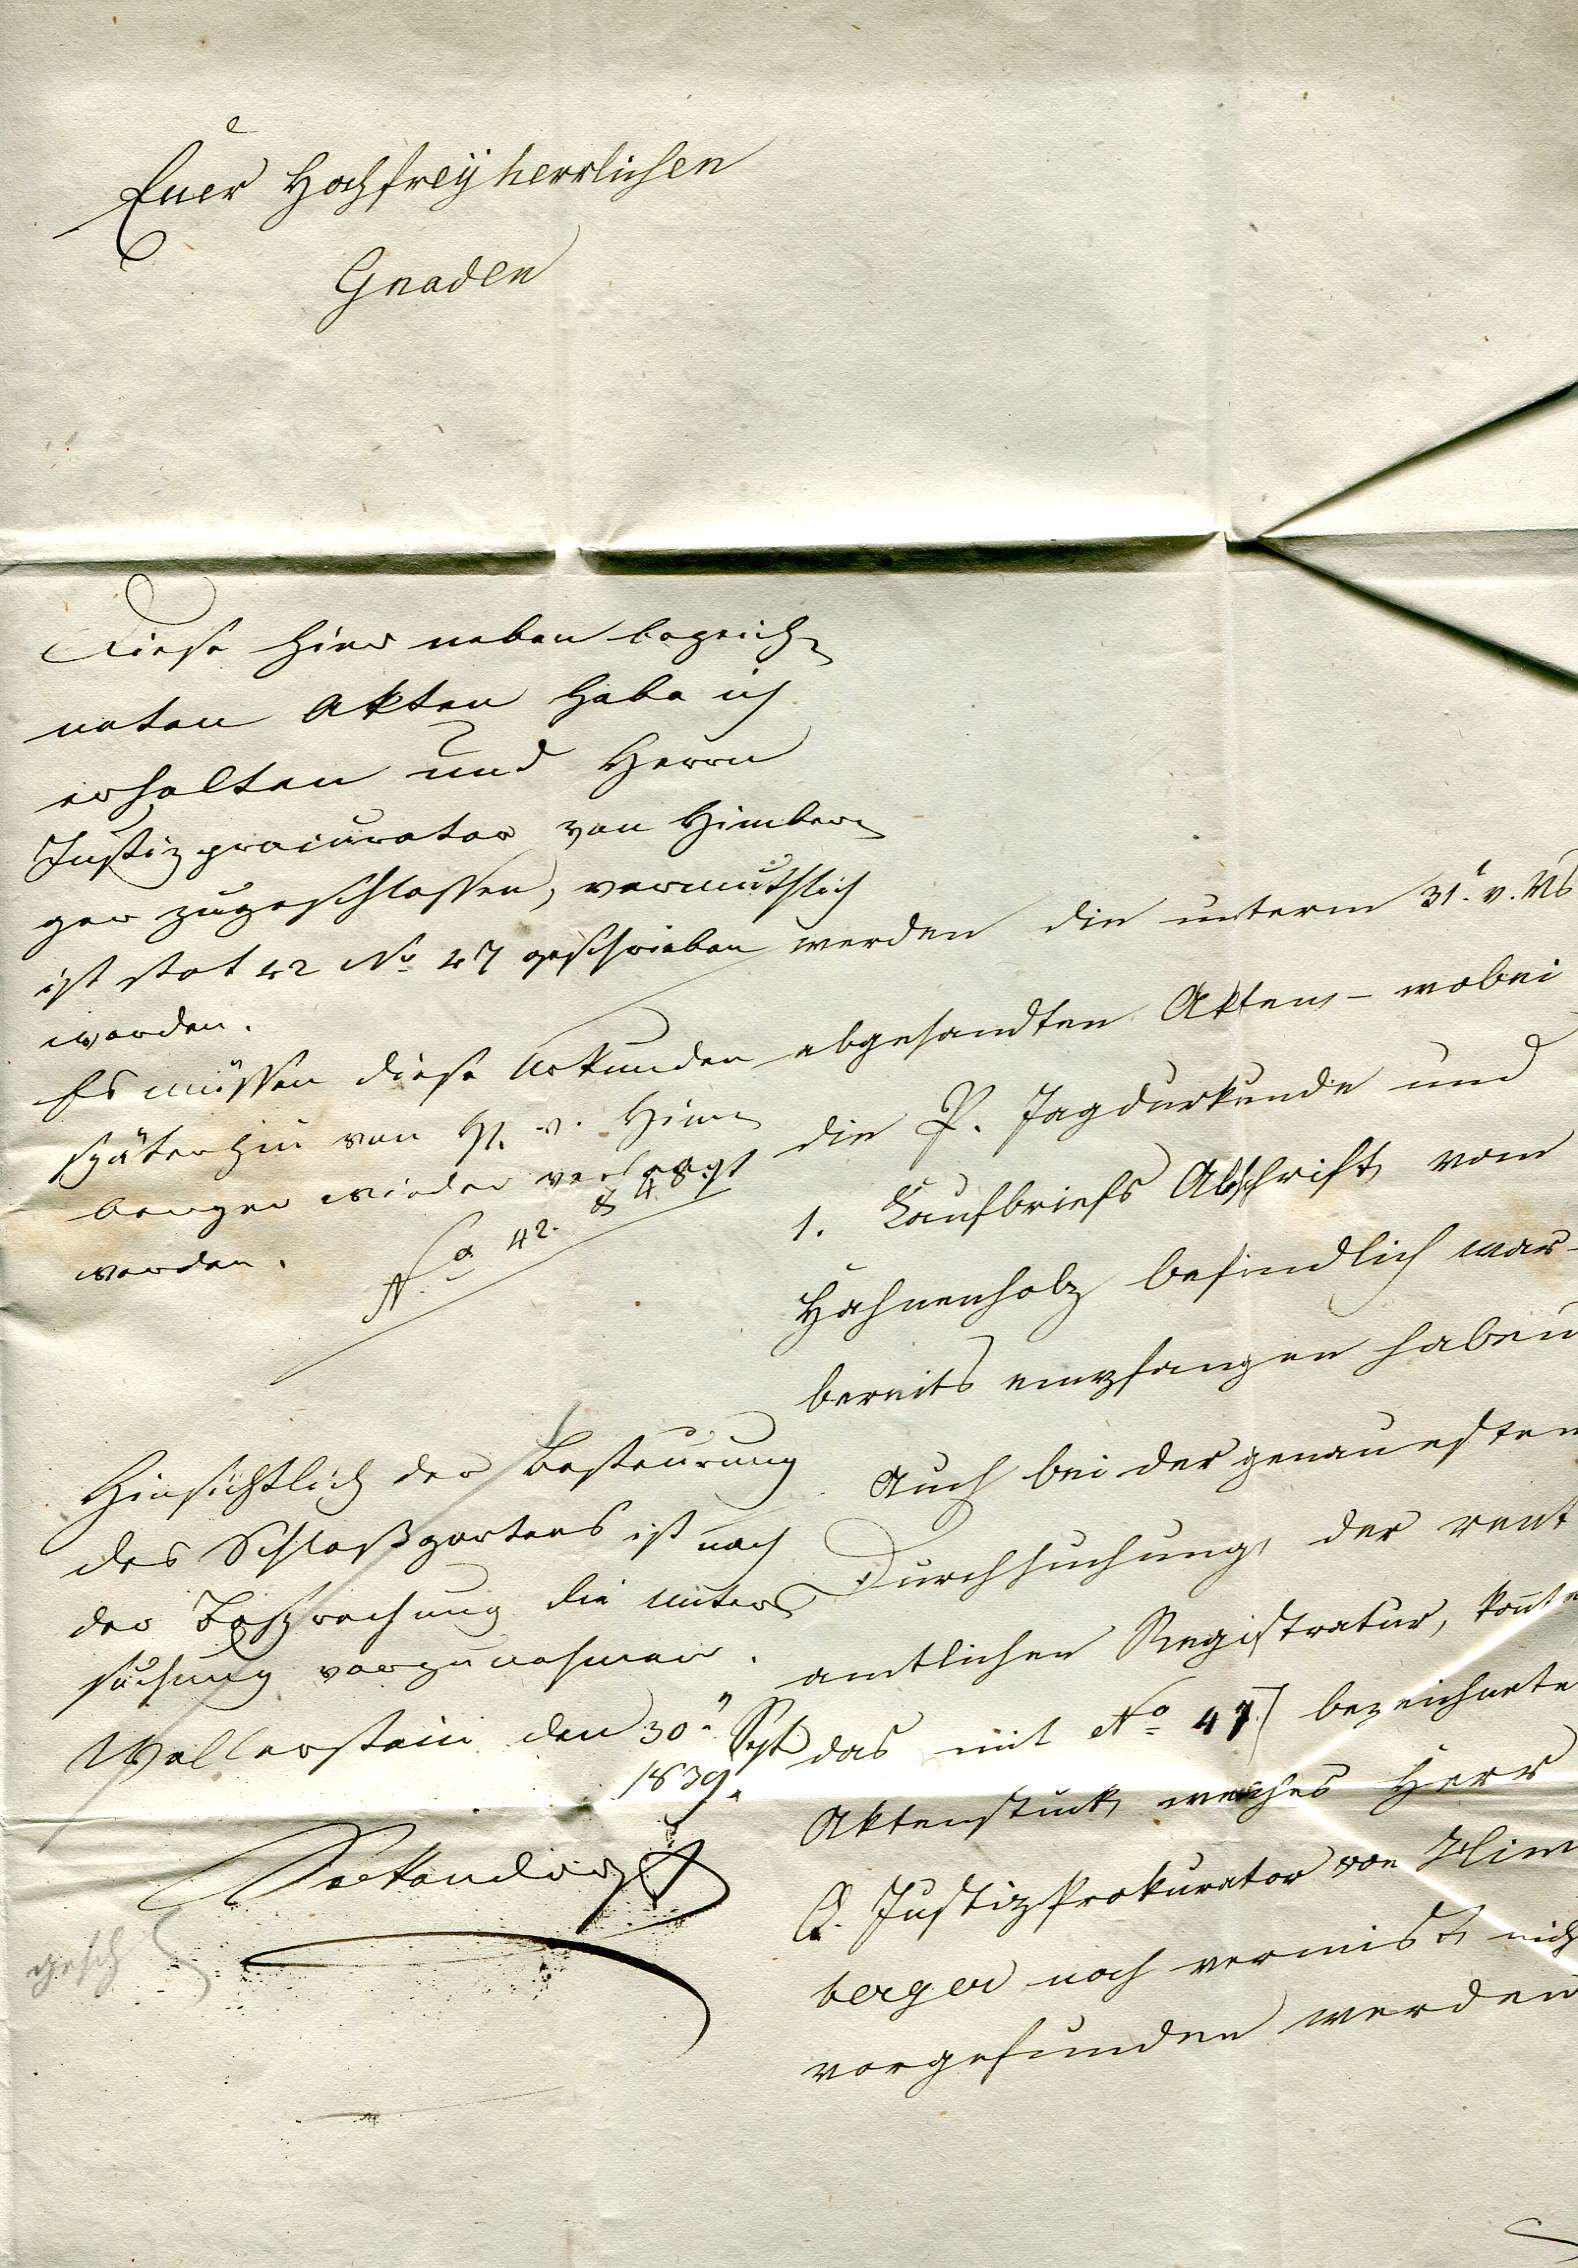 Euer Hochfreyherrlichen
Gnaden
Diese hier neben bezeich-
neten Akten habe ich
erhalten und Herrn
Justizprocurator von Himber-
ger zugeschlossen, vermuthlich
ist stat 42 No 47 geschrieben
worden.
Es müssen diese Urkunden
späterhin von H. v. Him-
berger wieder verlangt
werden.
No 42. & 48.
Hinsichtlich der Besteurung
des Schloßgartens ist nach
der Besprechung die Unter-
suchung vorzunehmen.
Wallerstein den 30. Sept
1839.
gesch
werden die unterm 31. v. Ms
abgesandten Akten – wobei
die P. Jagdurkunde und
1. Kaufbriefs Abschrift vom
Hahnenholz befindlich war –
bereits empfangen haben
Auch bei der genauesten
Durchsuchung der rent
amtlichen Registratur, konte
das mit No 47 bezeichnete
Aktenstück welches Herr
Q. Justiz Prokurator von Him
berger noch vermißt, nich
vorgefunden werden